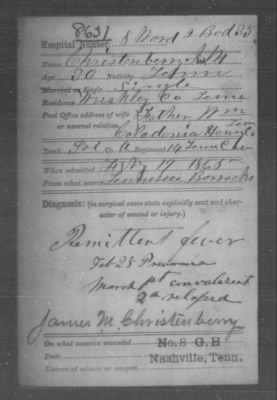 8631
Hospital Number, 8 Ward 2 Bed 33
Name Christenberry J. M
Age 20 Nativity Tenn
Married or Single Single
Residence Weakley Co Tenn
Post Office address of wife Father Wm
or nearest relation, Tenn
Caledonia Henry Co
Rank Pvt Co A Regiment 14 Tenn Cav
When admitted Feby 19 1865
From what source Tennessee Barracks
Diagnosis: (in surgical cases state explicitly seat and char-
acter of wound or injury.)
Remittent fever
Feb 25 Pneumonia
March 1st convalescent
2d relapsed
James M. Christenberry
On what occasion wounded No. 8 G. H
Date Nashville, Tenn.
Nature of missile or weapon